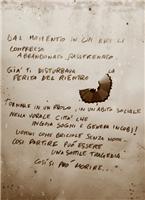 DAL MOMENTO IN CUI ERI LÌ
COMPRESSO
ABBANDONATO, RASSERENATO
GIÀ TI DISTURBAVA LA
FERITA DEL RIENTRO
TORNARE IN UN RUOLO, IN UN ABITO SOCIALE
NELLA CITTÀ CHE
INGOIA SOGNI E GENERA INCUBI!
UOMINI COME BRICIOLE SENZA NOME...
COSÌ PARTIRE PUÒ ESSERE
UNA SOTTILE TRAGEDIA
COSÌ SI PUÒ MORIRE...